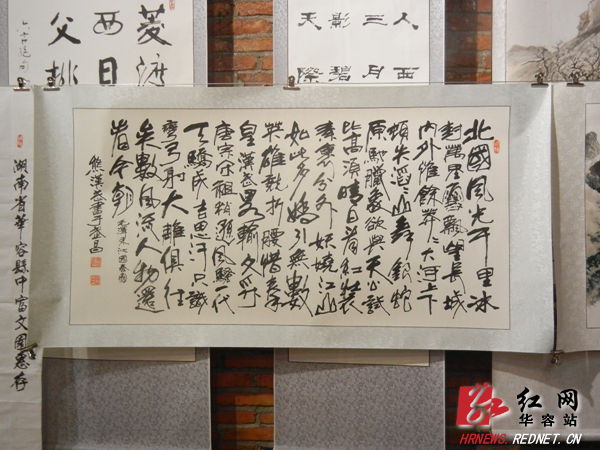 菱渡
西日
父
人西
三月
影碧
天際
北國風光千里冰
封萬里雪飄望長城
内外維餘莽〻大河上下
頓失滔〻山舞銀蛇
原馳臘象欲與天公試
比高須晴日看紅裝
素裹分外妖嬈江山
如此多嬌引無數
英雄競折腰惜秦
皇漢武略輸文采
唐宗宋祖稍遜風騷一代
天驕成吉思汗只識
彎弓射大雕俱往
矣數風流人物還
看今朝
毛澤東沁園春雪
熊漢武書于
湖南省華容縣中富文園惠存
红网
华容站
HRNEWS.REDNET.CN